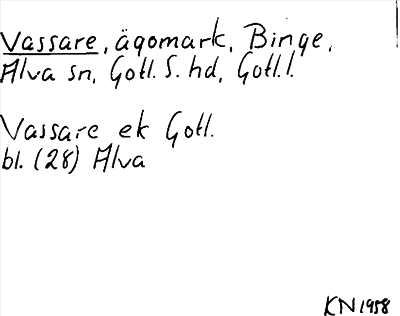 Vassare, ägomark, Binge,
Alva sn, Gotl. S. hd, Gotl. l.
Vassare ek Gotl.
bl. (28) Alva
KN 1958